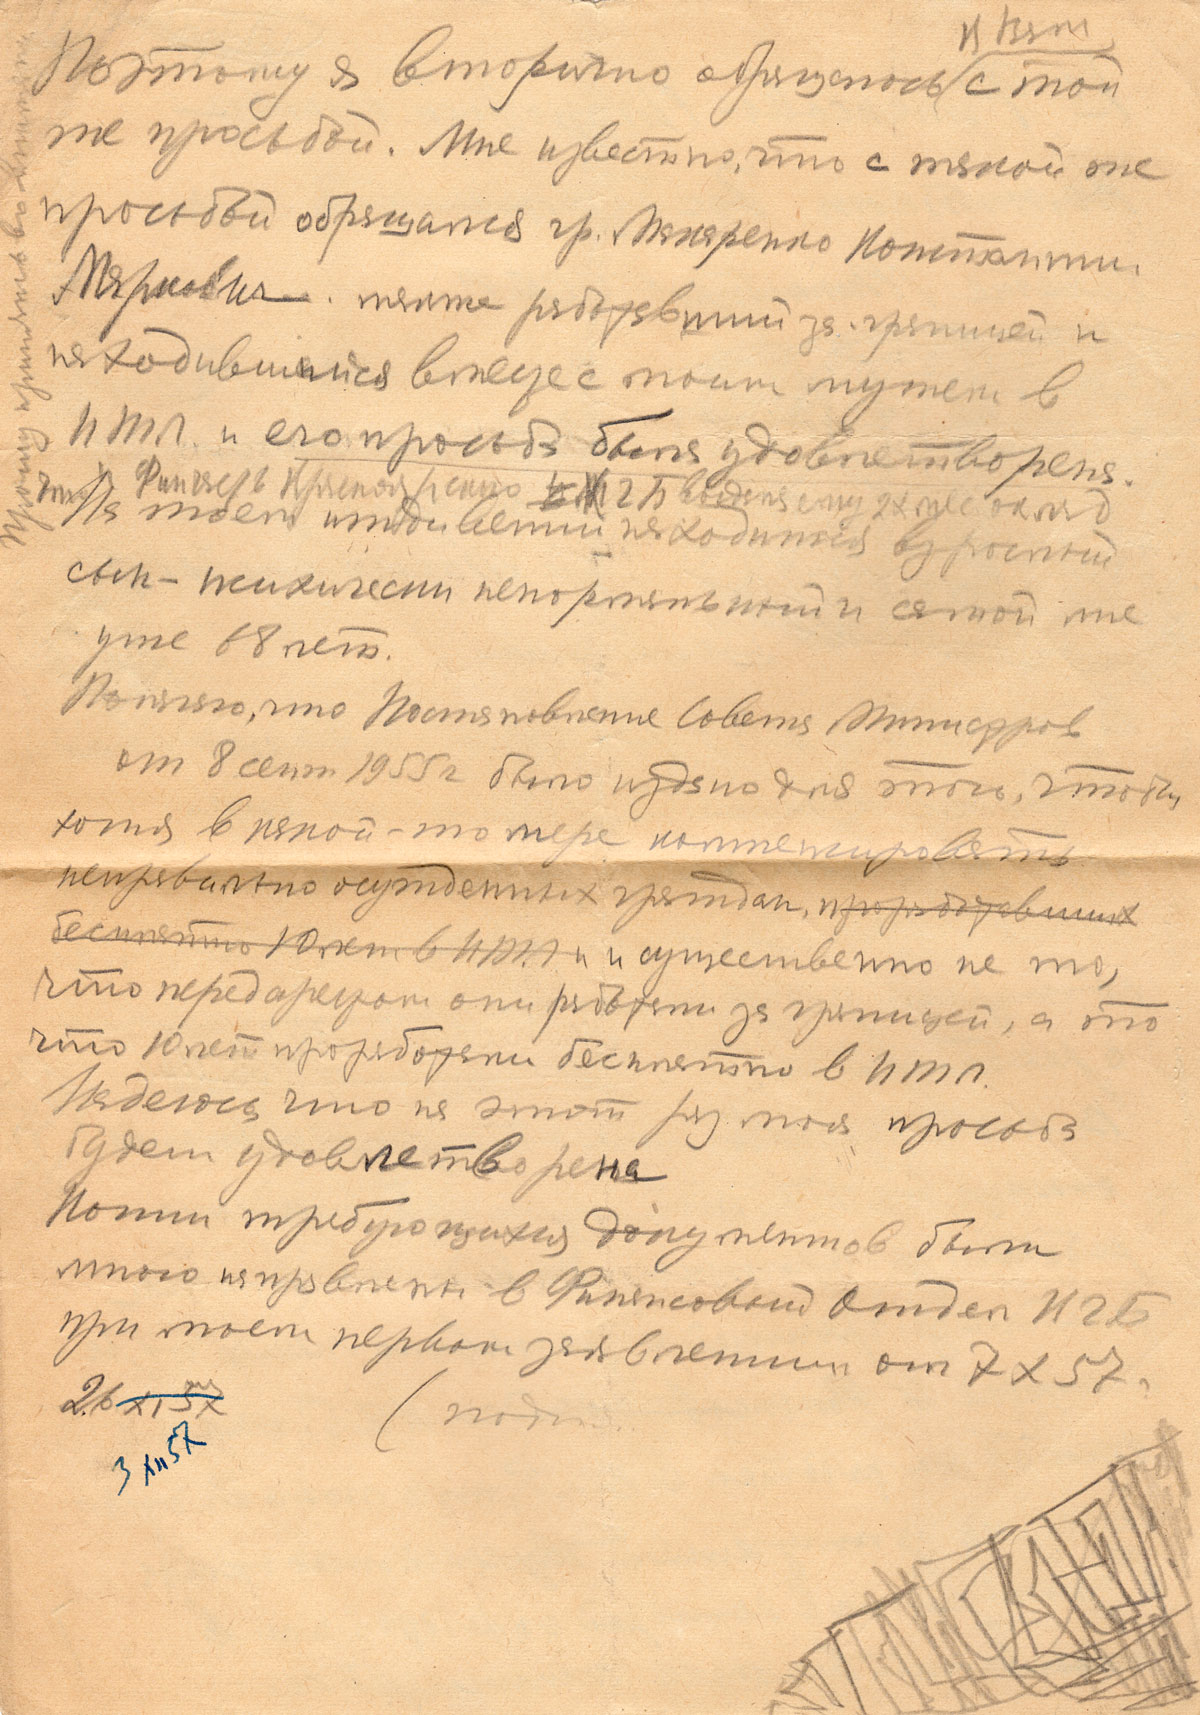 к Вам
Поэтому я вторично обращаюсь с той
же просьбой. Мне известно, что с такой же
просьбой обращался гр. Макаренко Константин
Маркович. также работавший за границей и
находившийся вместе с моим мужем в
ИТЛ. и его просьба была удовлетворена.
Финчасть Красноярского ему 2х мес оклад
На моем иждивении находится взрослый
сын - психически ненормальный и самой мне
уже 68 лет.
Полагаю, что Постановление Совета Министров
от 8 сент 1955г было издано для того, чтобы
хотя в какой-то мере компенсировать
неправильно осужденных граждан, проработавших
бесплатно 10 лет в ИТЛ и и существенно не то,
что перед арестом они работали за границей, а то
что 10 лет проработали бесплатно в ИТЛ.
Надеюсь что на этот раз моя просьба
будет удовлетворена
Копии требующихся документов были
мною направлены в Финансовый Отдел КГБ
при моем первом заявлении от 7 X 57.
26 XI 57 (подп
3 XII 57
Прошу принять во внимание